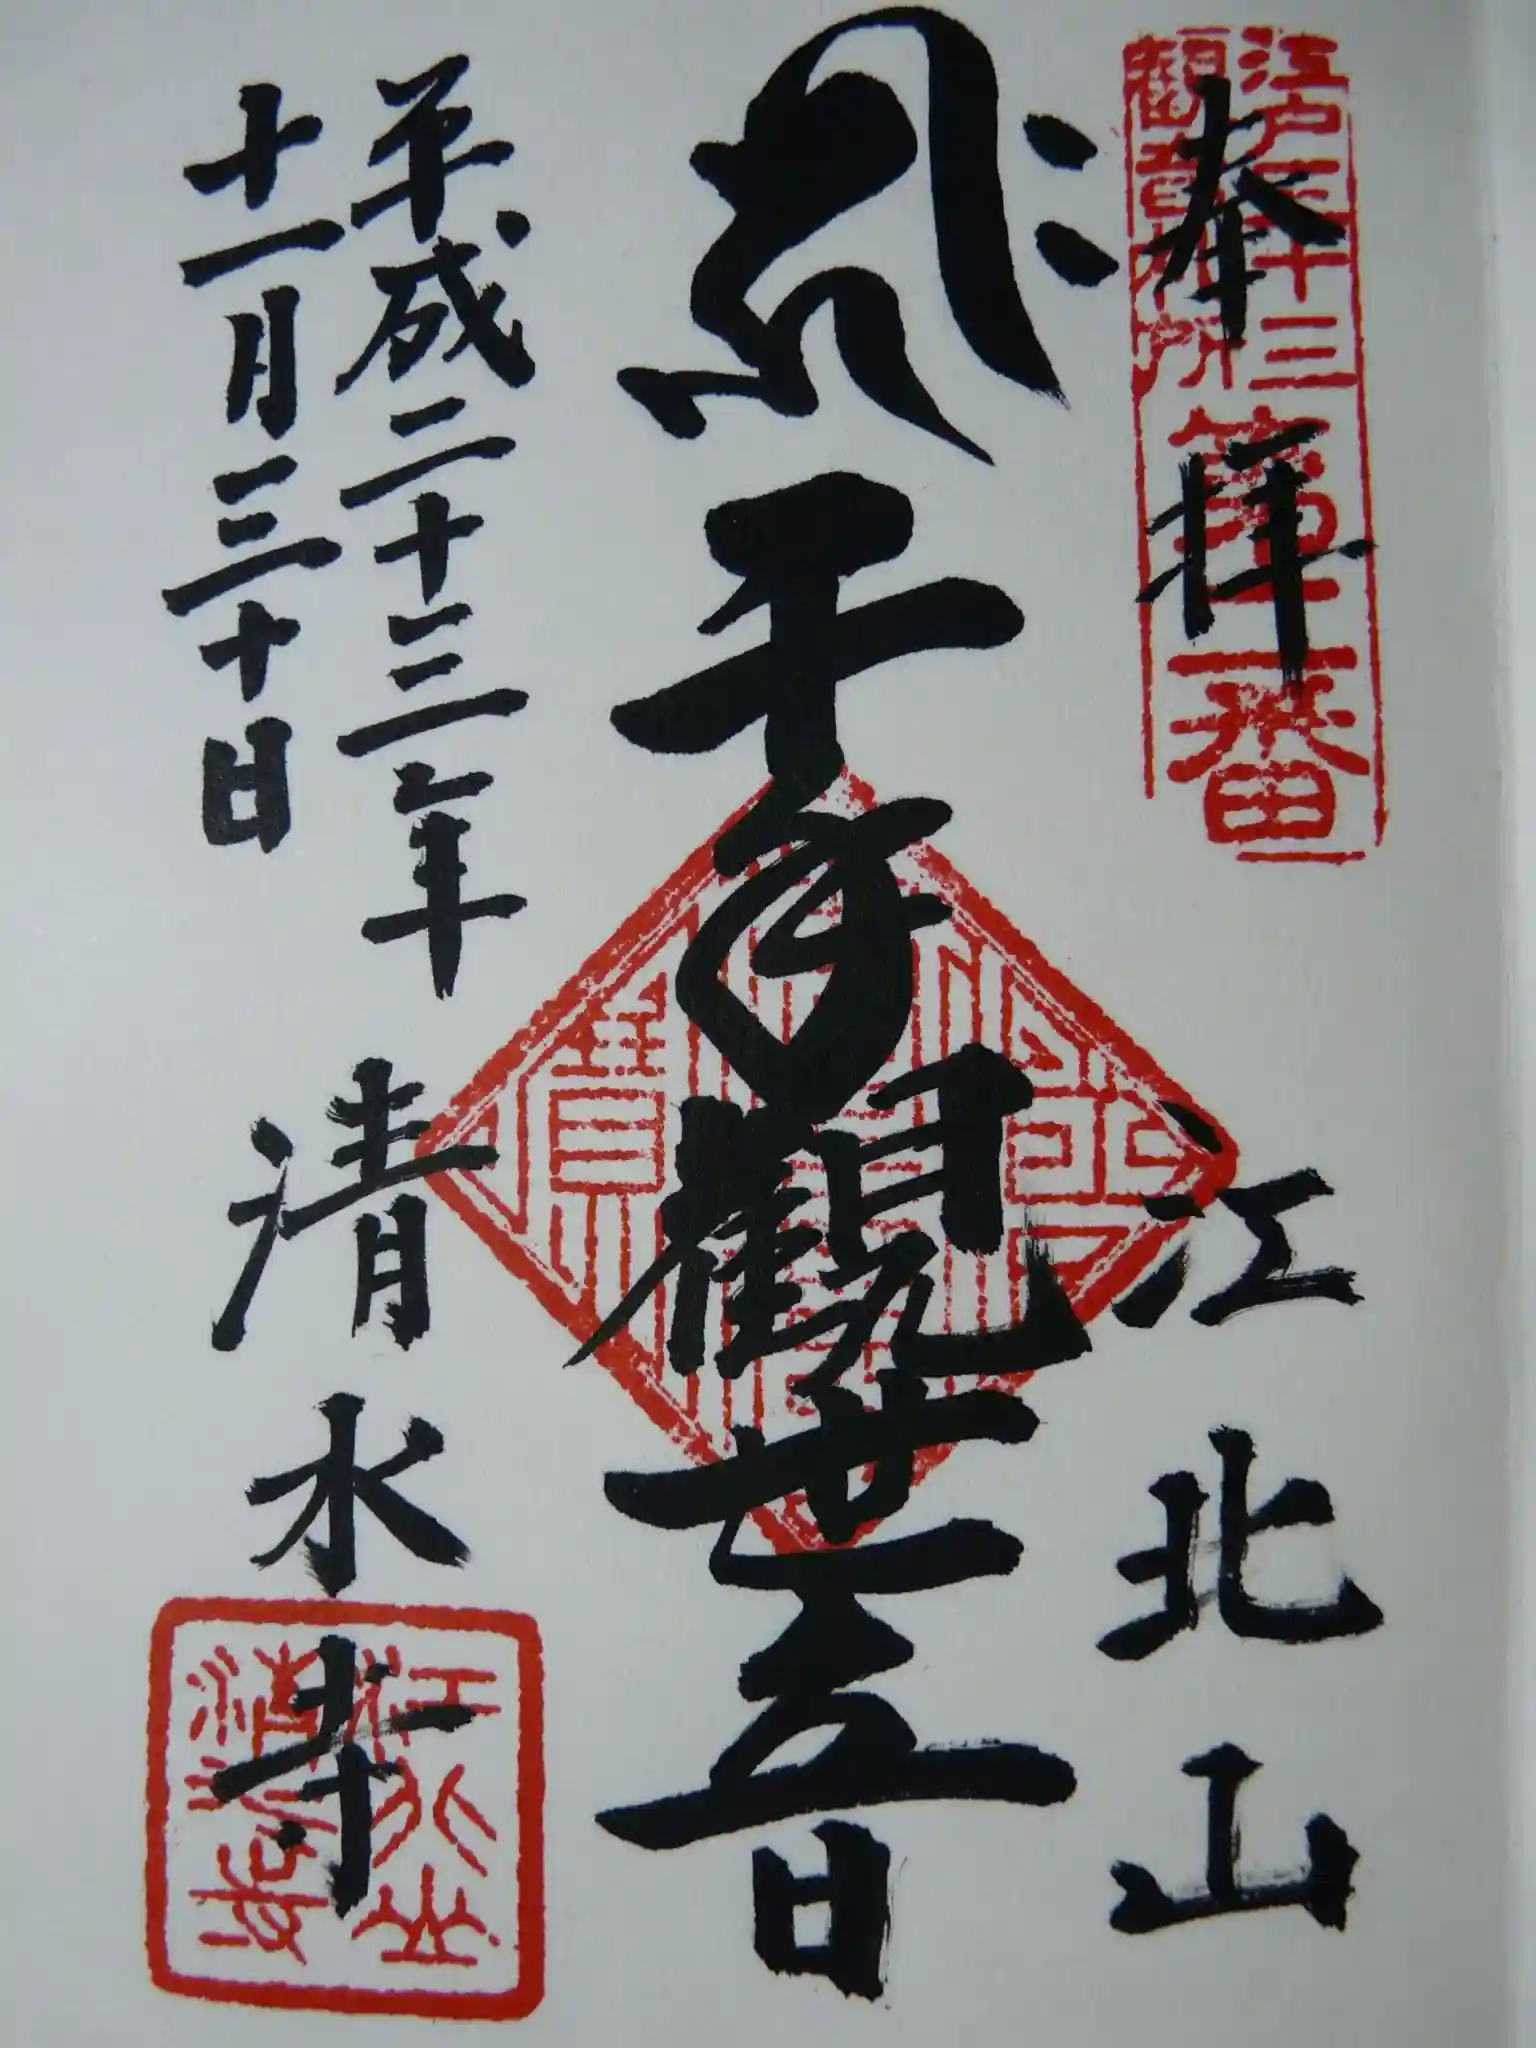 江戸三十三
観音札所
第二番
奉拝
江北山
千手觀世音
平成二十三年
十一月三十日
清水寺
江北山
清水寺